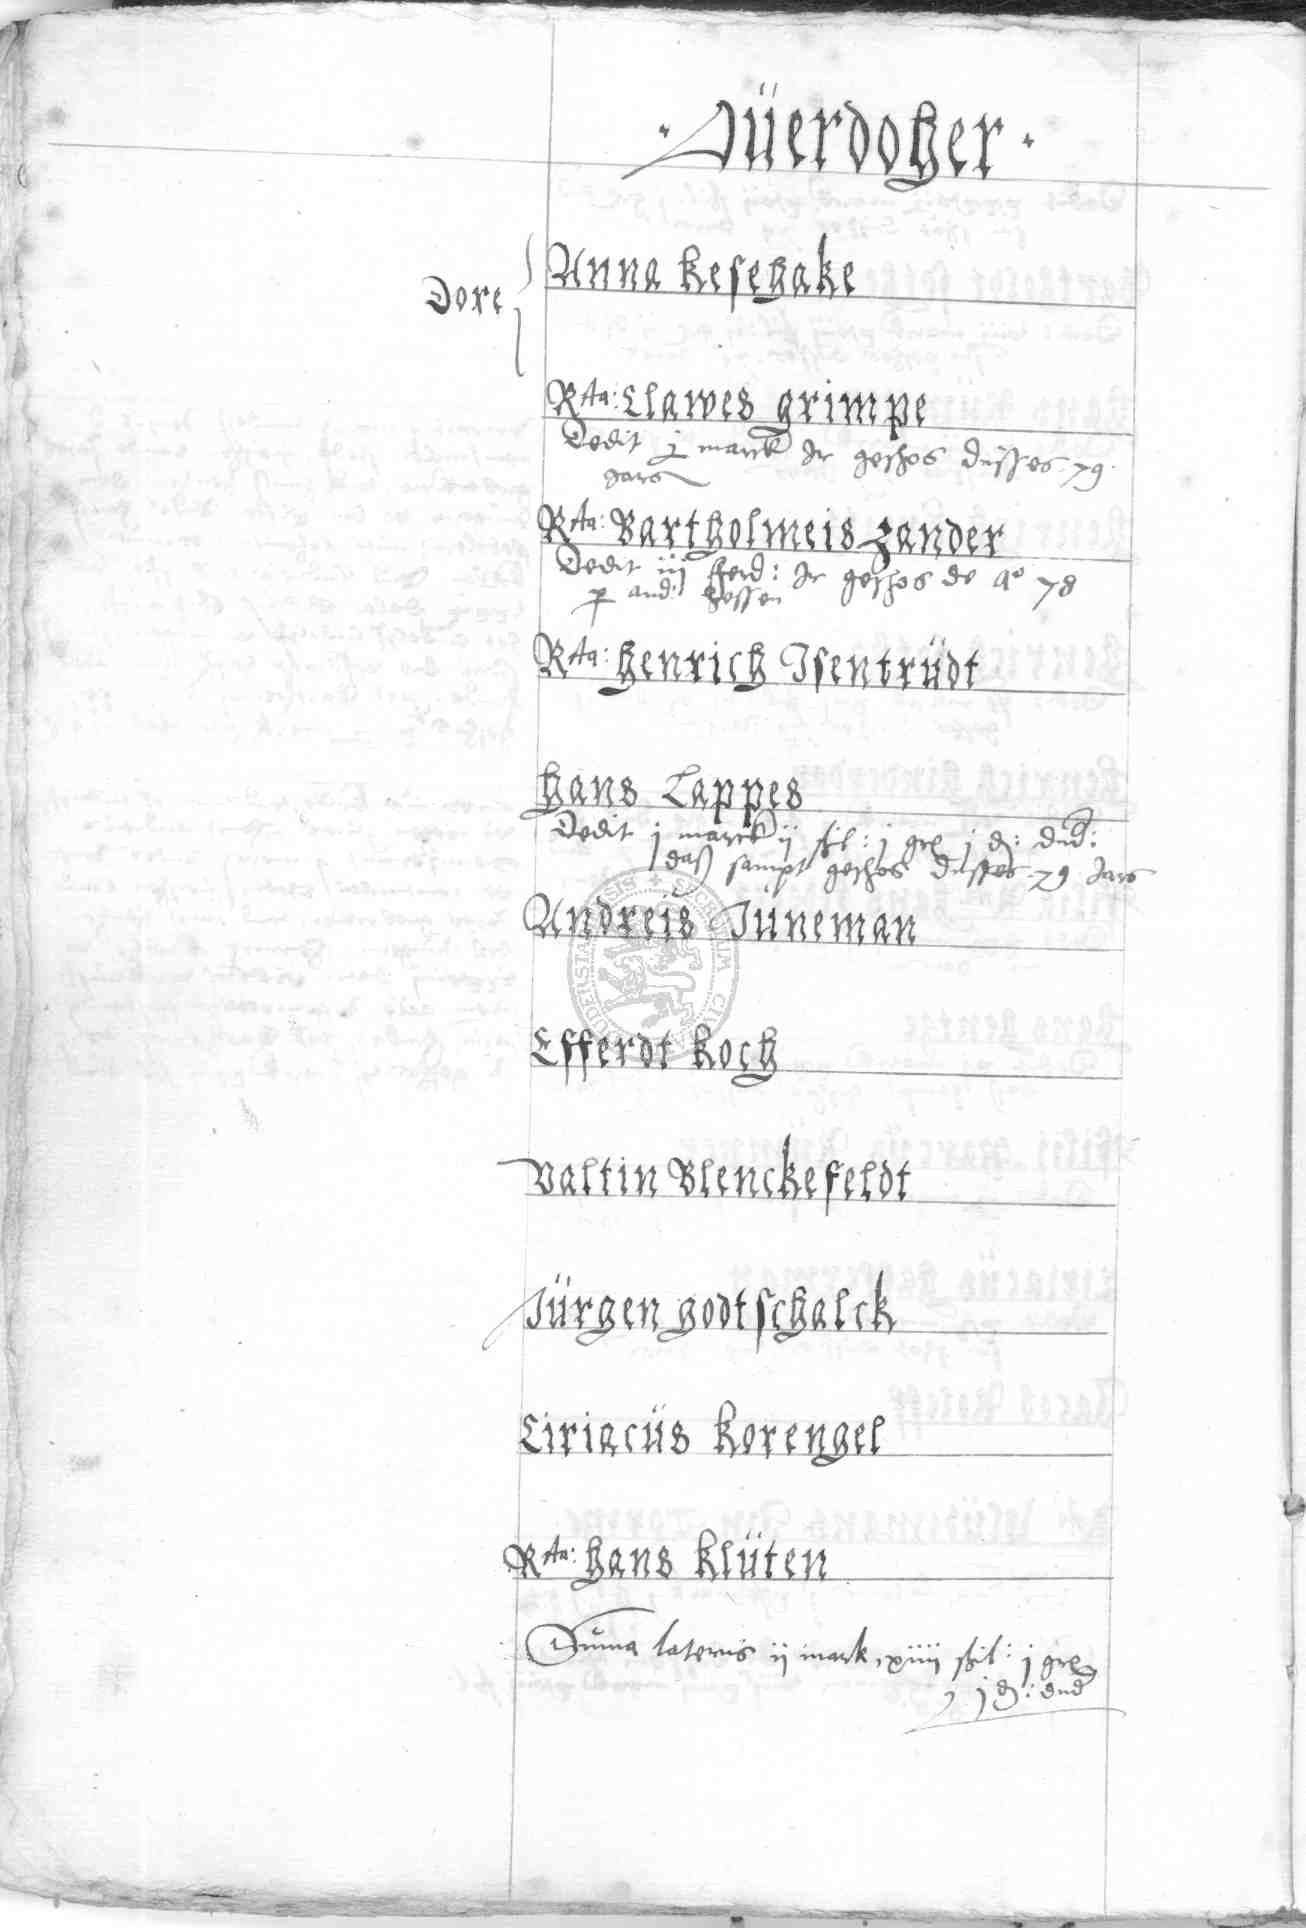 · Jüerdoher ·
Dore
Anna kesehake
Rta: Clawes grimpe
Dedit j marck Jr geschos düsses 79.
Jars
Rta: Bartholmeis zander
Dedit iij fferd: Jr geschos de ao 78
p and: hessen
Rta: henrich Isentrüdt
hans Lappes
Dedit j marck ij ßil: j gre j d: dud:
daß sampt geschos dusses 79 Jars
Andreis Jüneman
Efferdt koch
Valtin Blenckefeldt
Jürgen godtschalck
Ciriacüs korengel
Rta: hans klüten
Suma lateris ij mark, xiiij ßil: j gre
j d: dud